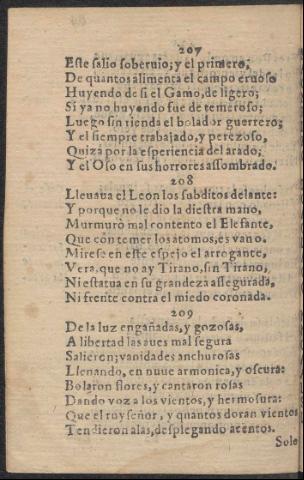 207
Este salio soberuio; y el primero;
De quantos alimenta el campo eruoso
Huyendo de si el Gamo, de ligero;
Si ya no huyendo fue de temeroso;
Luego sin tienda el bolador guerrero;
Y el siempre trabajado, y perezoso,
Quizá por la esperiencia del arado;
Y el Oso en sus horrores assombrado.
208
Lleuaua el Leon los subditos delante:
Y porque no le dio la diestra mano,
Murmurò mal contento el Elefante,
Que con temer los atomos, es vano.
Mirese en este espejo el arrogante,
Vera, que no ay Tirano, sin Tirano,
Ni estatua en su grandeza assegurada,
Ni frente contra el miedo coronada.
209
De la luz engañadas, y gozosas,
A libertad las aues mal segura
Salieron; vanidades anchurosas
Llenando, en nuue armonica, y oscura:
Bolaron flores, y cantaron rosas
Dando voz a los vientos, y hermosura:
Que el ruyseñor, y quantos doran vientos
Tendieron alas, desplegando acentos.
Solo